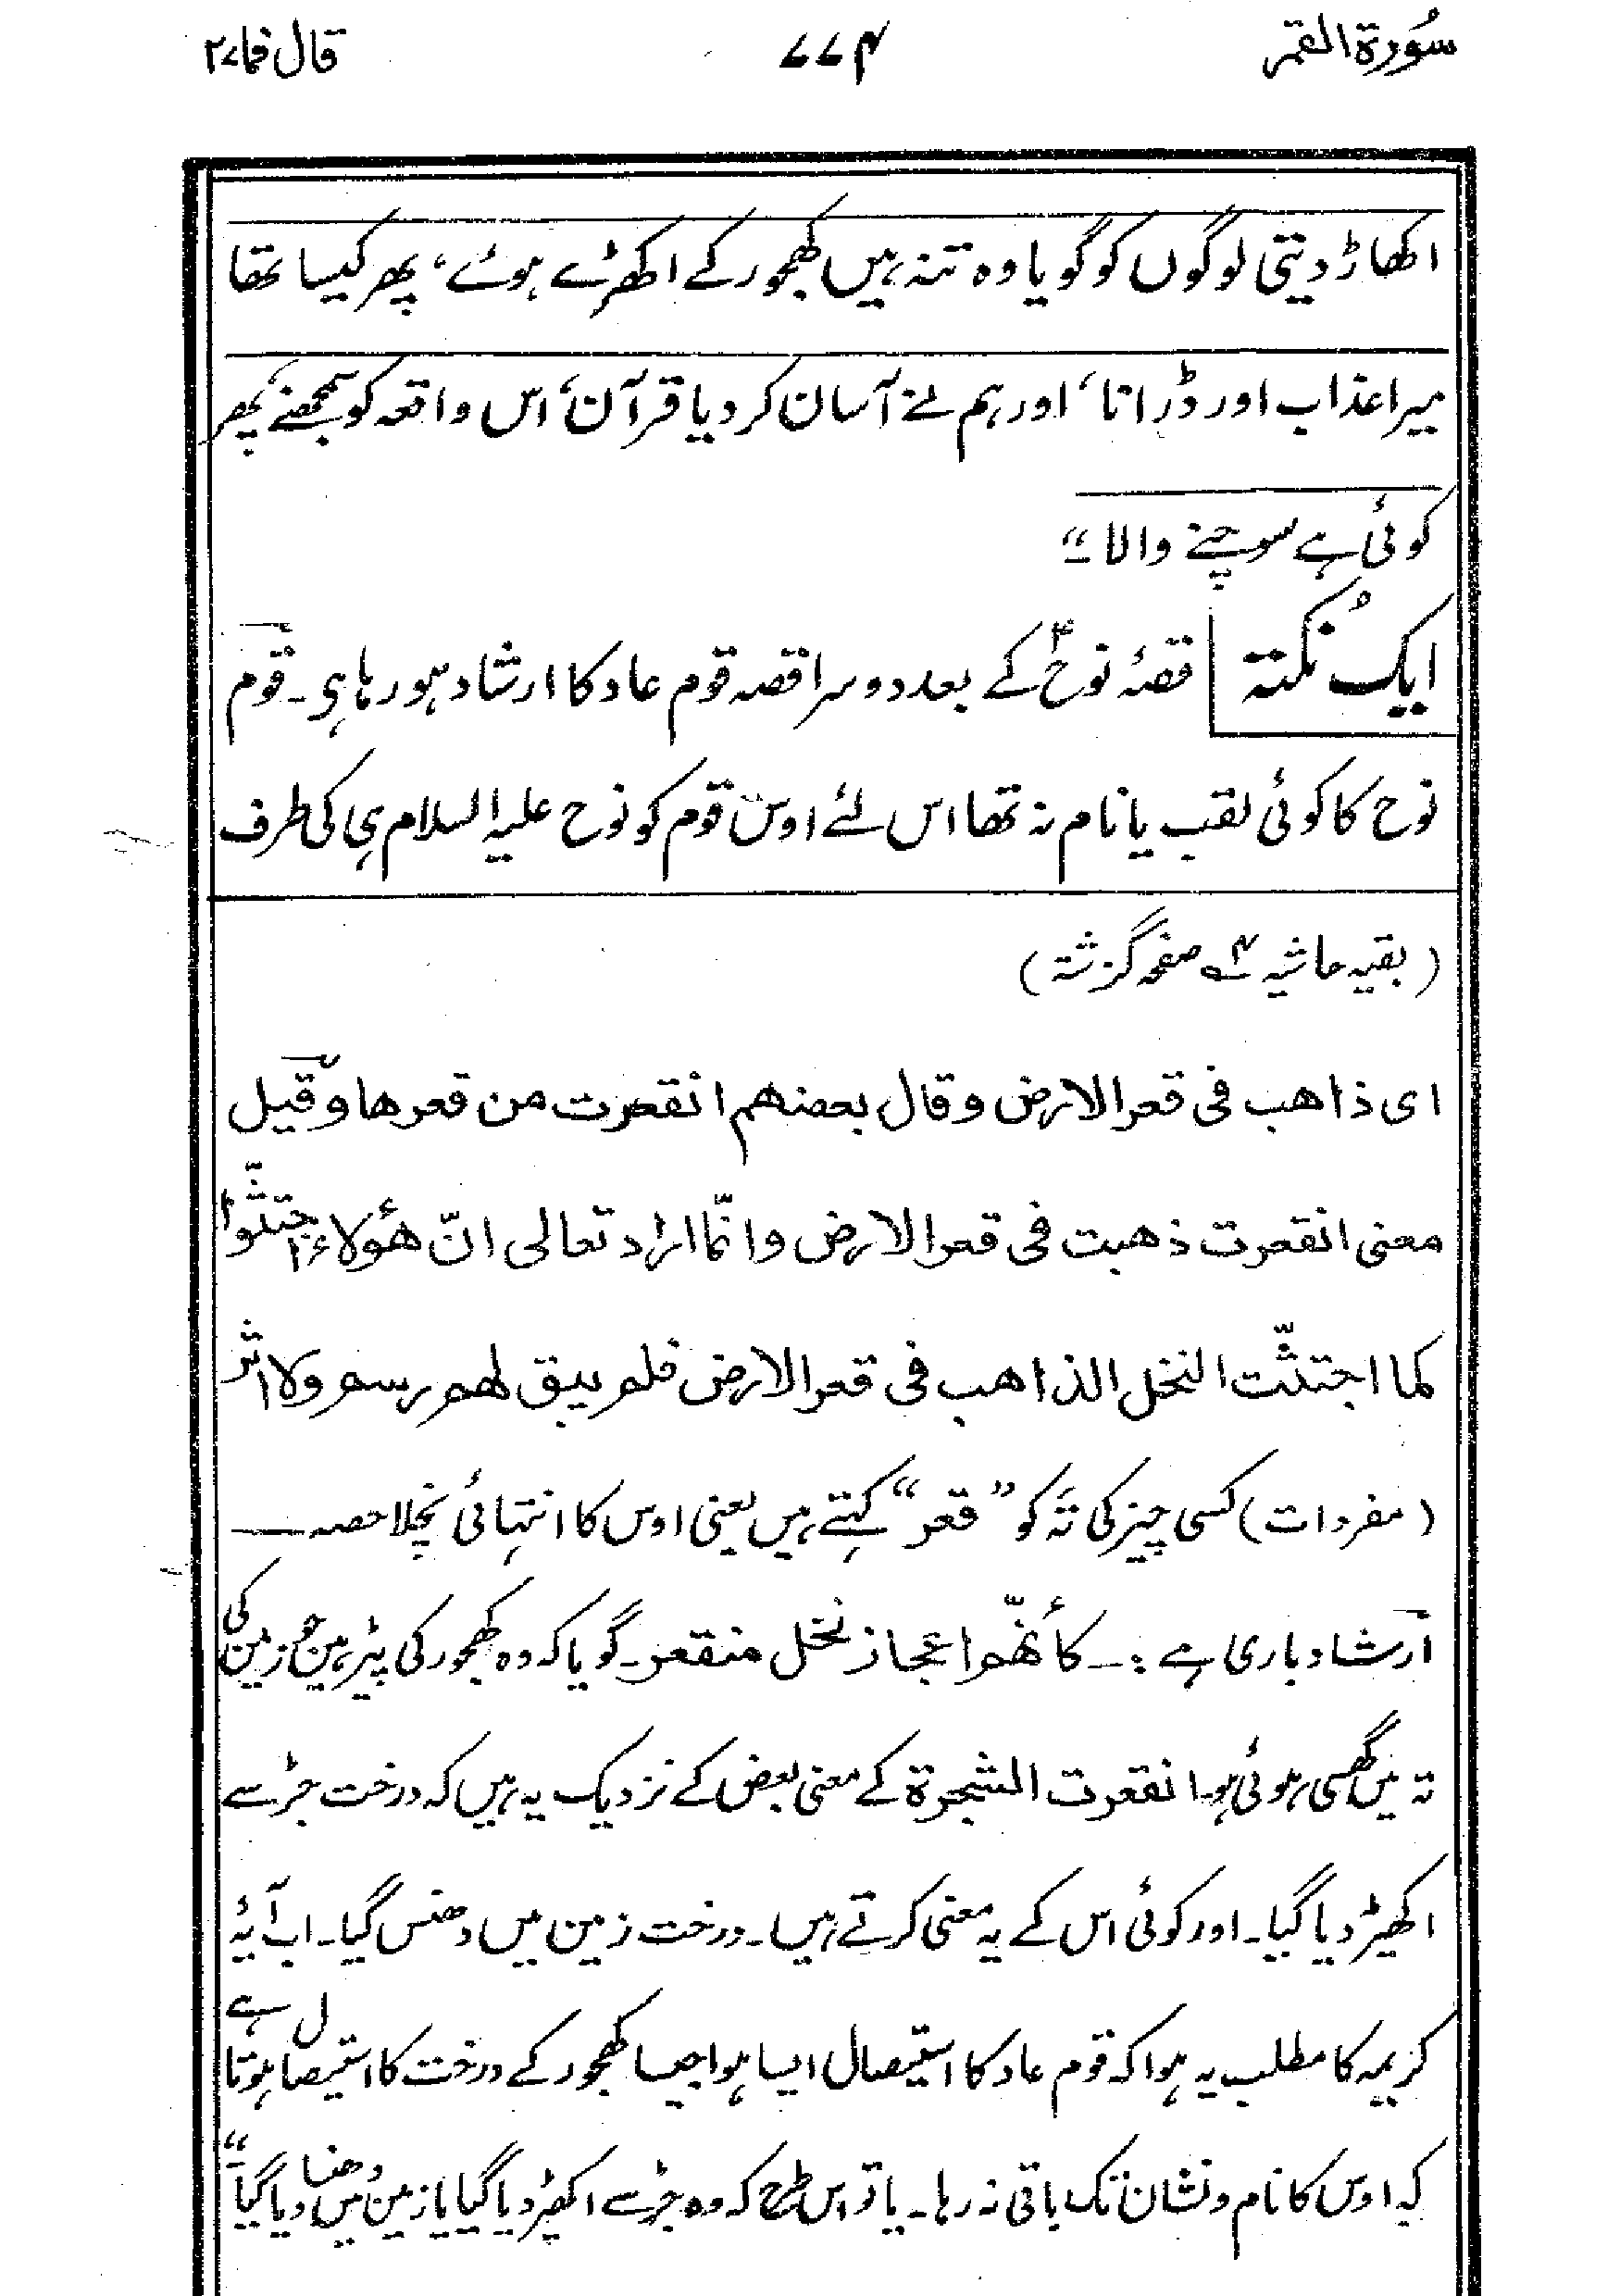 سُورۃ القمر
۷۷۴
قال فما ۲۷
اکھاڑ دیتی لوگوں کو گویا وہ تنہ ہیں کھجور کے اکھڑے ہوئے، پھر کیسا تھا
میرا عذاب اور ڈرانا، اور ہم نے آسان کر دیا قرآن، اس واقعہ کو سمجھنے، پھر
کوئی ہے سوچنے والا"
ایک نُکتہ قصۂ نوحؑ کے بعد دوسرا قصہ قوم عاد کا ارشاد ہو رہا ہی۔ قوم
نوح کا کوئی لقب یا نام نہ تھا اس لئے اوس قوم کو نوح علیہ السلام ہی کی طرف
(بقیہ حاشیہ ۴ صفحہ گزشتہ)
ای ذاهب فی قعر الارض وقال بعضهم انقعرت من قعرها وقیل
معنی انقعرت ذهبت فی قعر الارض وانّما اراد تعالی انّ هؤلاء اجتثّوا
کما اجتثّت النخل الذاهب فی قعر الارض فلم یبق لهم رسم ولا اثر
(مفردات) کسی چیز کی تہ کو "قعر" کہتے ہیں یعنی اوس کا انتہائی نچلا حصہ ـــ
ارشاد باری ہے :۔ کأنّهم اعجاز نخل منقعر۔ گویا کہ وہ کھجور کی پیڑ ہیں جو زمین کی
تہ میں گھسی ہوئی ہو۔ انقعرت الشجرة کے معنی بعض کے نزدیک یہ ہیں کہ درخت جڑ سے
اکھیڑ دیا گیا۔ اور کوئی اس کے یہ معنی کرتے ہیں۔ درخت زمین میں دھنس گیا۔ اب آیۂ
کریمہ کا مطلب یہ ہوا کہ قوم عاد کا استیصال ایسا ہوا جیسا کھجور کے درخت کا استیصال ہوتا ہے
کہ اوس کا نام و نشان تک باقی نہ رہا۔ یا تو اس طرح کہ وہ جڑ سے اکھیڑ دیا گیا یا زمین میں دھنسا دیا گیا"